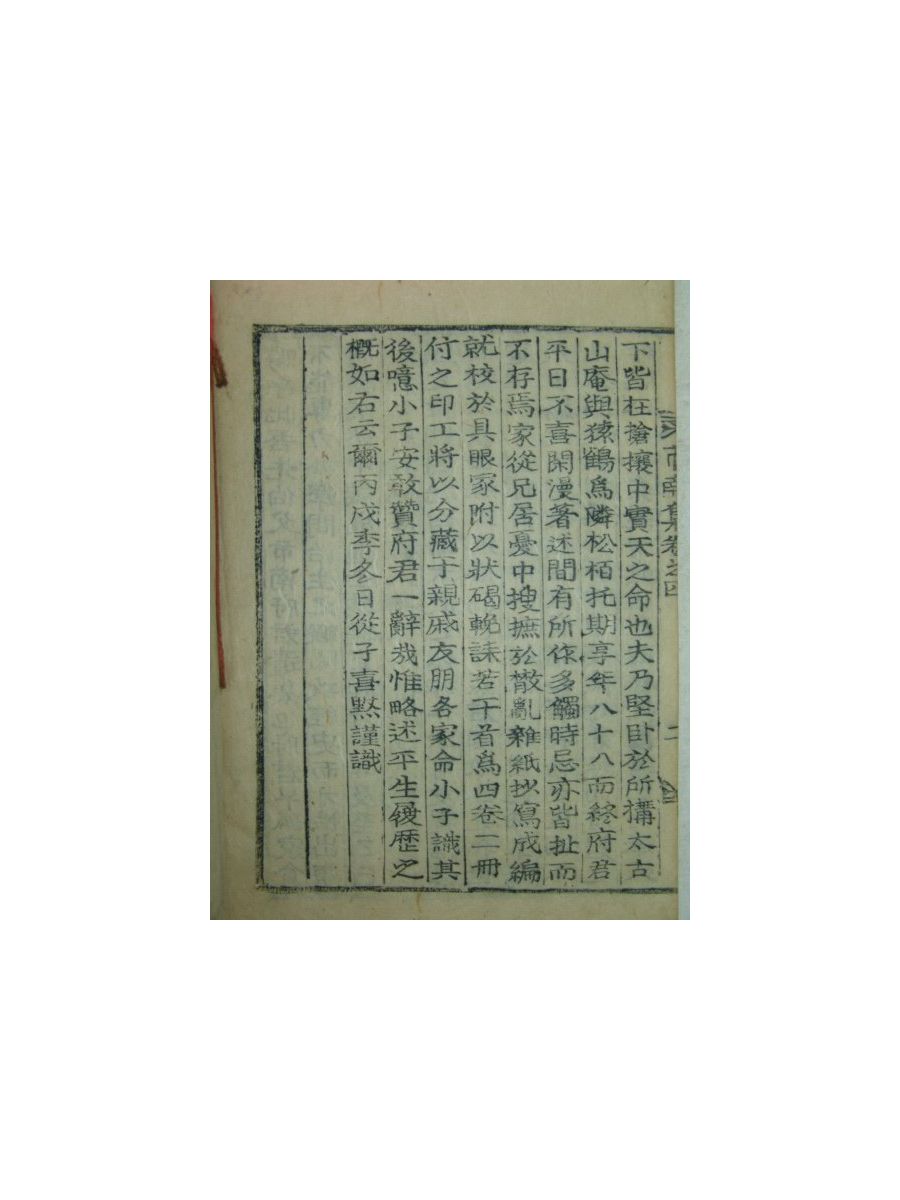 市南集卷之四
二
下皆在搶攘中實天之命也夫乃堅臥於所搆太古
山庵與猿鶴爲隣松栢托期享年八十八而終府君
平日不喜閑漫著述間有所作多觸時忌亦皆扯而
不存焉家從兄居憂中搜摭於散亂雜紙抄寫成編
就校於具眼冢附以狀碣輓誄若干首爲四卷二冊
付之印工將以分藏于親戚友朋各家命小子識其
後噫小子安敢贊府君一辭哉惟略述平生履歷之
槪如右云爾丙戌季冬日從子喜黙謹識